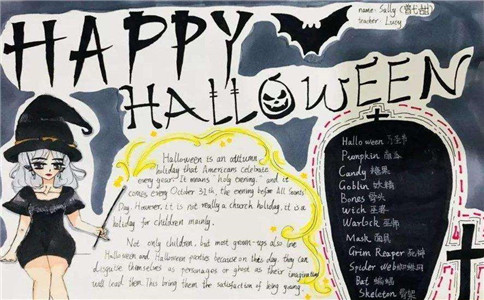 HAPPY
HALLOWEEN
name: Sally
teacher: Lucy
Halloween is an autumn
holiday that Americans celebrate
every year. It means "holy evening," and it
comes every October 31th, the evening before All Saints
Day. However, it is not really a church holiday, it is a
holiday for children mainly.
Not only children, but most grown-ups also love
Halloween and Halloween parties because on this day, they can
disguise themselves as personages or ghost as their imaginations
will lead them. This bring them the satisfaction of being young.
Halloween 万圣节
Pumpkin 南瓜
Candy 糖果
Goblin 妖精
Bones 骨头
Witch 巫婆
Warlock 巫师
Mask 面具
Grim Reaper 死神
Spider Web 蜘蛛网
Bat 蝙蝠
Skeleton 骨架